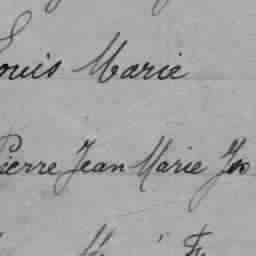 Louis Marie
Pierre Jean Marie